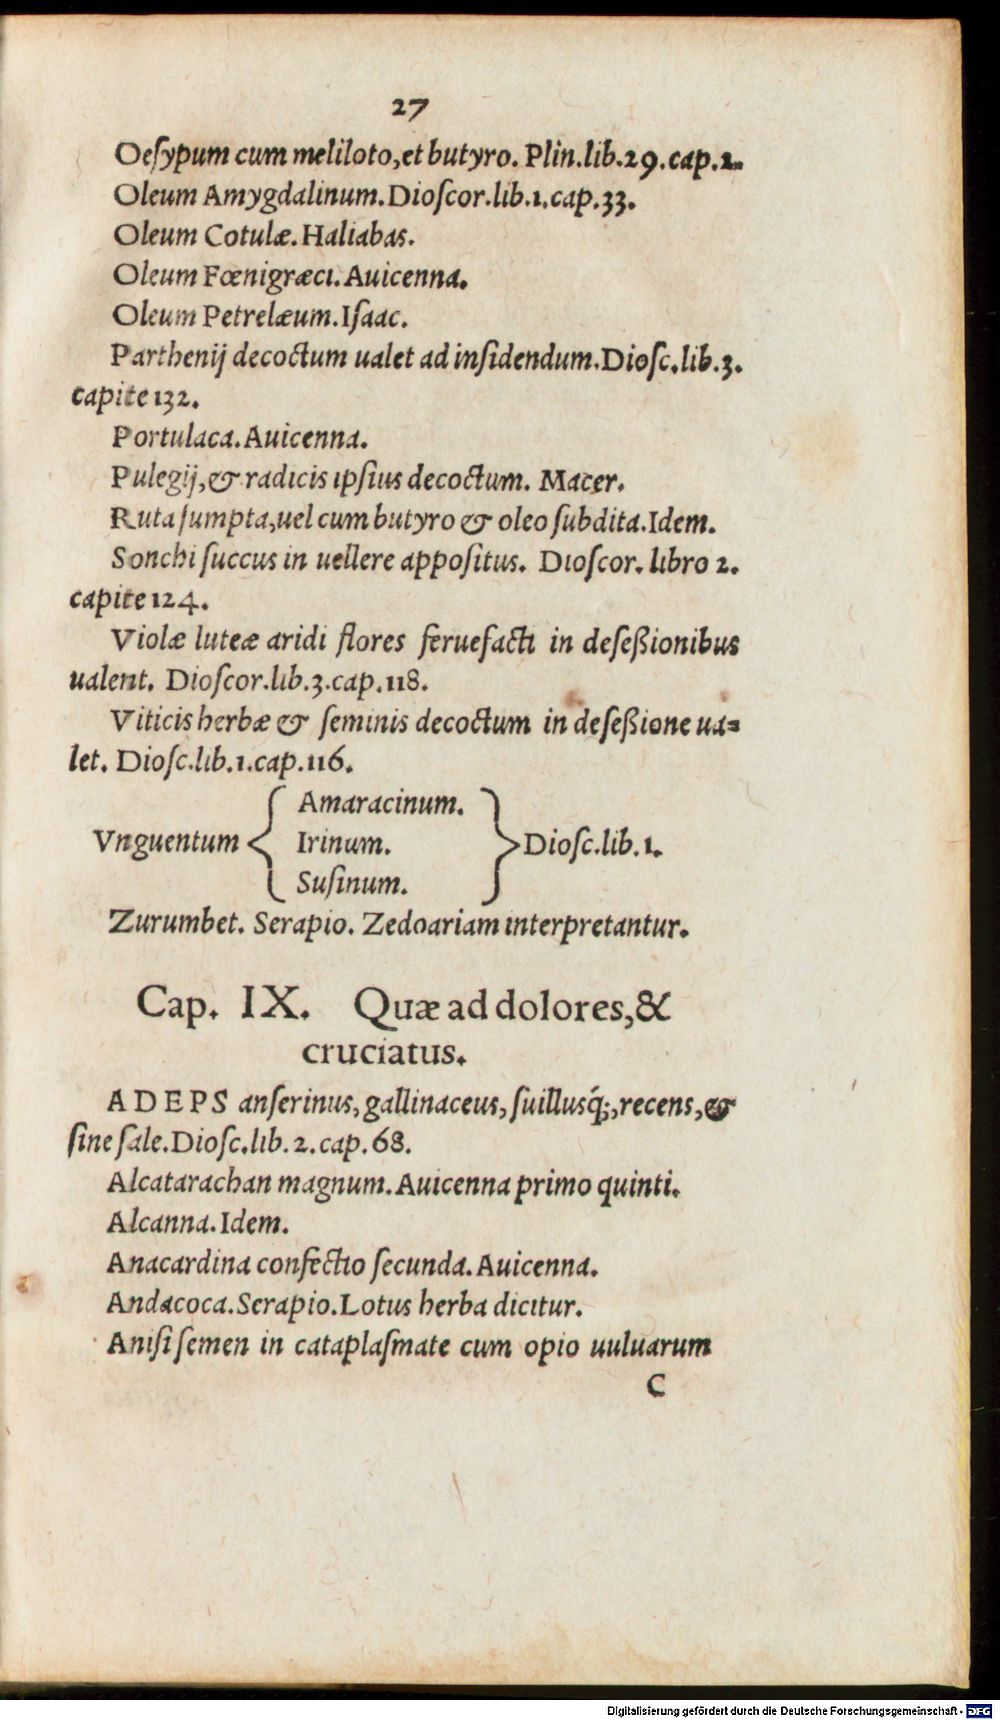 27
Oeſypum cum meliloto, et butyro. Plin. lib. 29. cap. 2.
Oleum Amygdalinum. Dioſcor. lib. 1. cap. 33.
Oleum Cotulæ. Haliabas.
Oleum Fœnigræci. Auicenna.
Oleum Petrelæum. Iſaac.
Parthenij decoctum ualet ad inſidendum. Dioſc. lib. 3.
capite 132.
Portulaca. Auicenna.
Pulegij, & radicis ipſius decoctum. Macer.
Ruta ſumpta, uel cum butyro & oleo ſubdita. Idem.
Sonchi ſuccus in uellere appoſitus. Dioſcor. libro 2.
capite 124.
Violæ luteæ aridi flores feruefacti in deſeßionibus
ualent. Dioſcor. lib. 3. cap. 118.
Viticis herbæ & ſeminis decoctum in deſeßione ua=
let. Dioſc. lib. 1. cap. 116.
Amaracinum.
Vnguentum { Irinum. } Dioſc. lib. 1.
Suſinum.
Zurumbet. Serapio. Zedoariam interpretantur.
Cap. IX. Quæ ad dolores, &
cruciatus.
ADEPS anſerinus, gallinaceus, ſuillusq́;, recens, &
ſine ſale. Dioſc. lib. 2. cap. 68.
Alcatarachan magnum. Auicenna primo quinti.
Alcanna. Idem.
Anacardina confectio ſecunda. Auicenna.
Andacoca. Serapio. Lotus herba dicitur.
Aniſi ſemen in cataplaſmate cum opio uuluarum
C
Digitalisierung gefördert durch die Deutsche Forschungsgemeinschaft - DFG